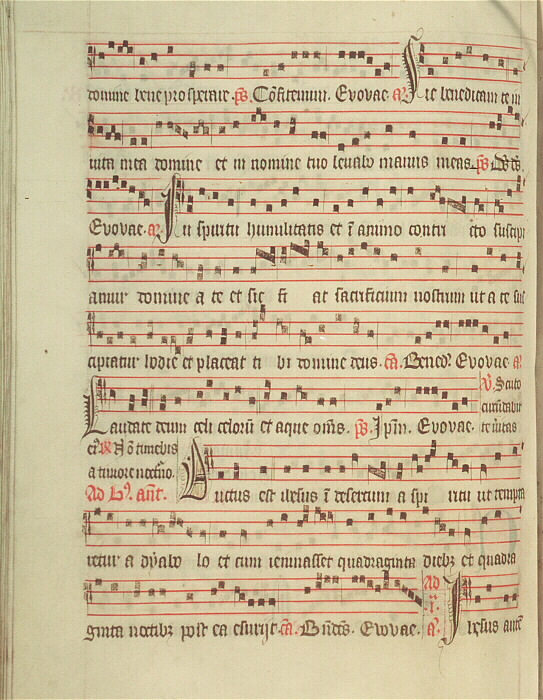 domine bene prosperare. ps̄ Cōfitemini. Evovae. a᷈. Sic benedicam te in
vita mea domine et in nomine tuo levabo manus meas. ps̄ Ds̄ ds̄
Evovae. a᷈. In spiritu humilitatis et ī animo contri to suscipi
amur domine a te et sic fi at sacrificium nostrum ut a te sus
cipiatur hodie et placeat ti bi domine deus. ca᷈. Bened᷈. Evovae a᷈
Laudate deum celi celorū et aque om̄s. ps̄. Ipm̄. Evovae.
V᷈. Scuto
circūdabit
te v̄itas
ei᷈. R᷈ Nō timebis
a timore nocť᷈no.
Ad b᷈. ant᷈.
Ductus est ihesus ī desertum a spi ritu ut tempta
retur a dyabo lo et cum ieiunasset quadraginta diebꝫ et quadra
ginta noctibꝫ post ea esuriit. ca᷈. Bn̄dc̄s. Evovae.
Ad
.i.
a᷈.
Ihesus autē